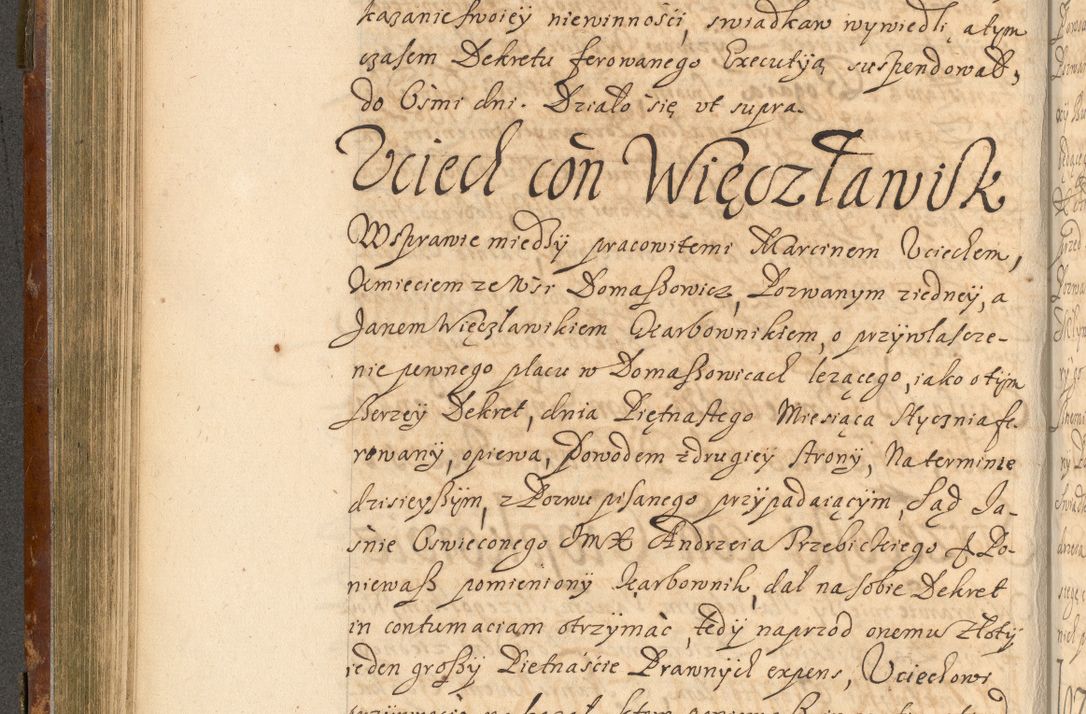 kazanie swoiey niewinności, swiadkow wywiedli, a tym
czasem Dekretu ferowanego Executyą suspendował,
do Osmi dni. Działo się vt supra.
Uciech cōn Więczławik
W sprawie miedzy pracowitemi Marcinem Uciechem,
Kmieciem ze Wsi Domaszowicz, Pozwanym z iedney, a
Janem Więczławikiem Karbownikiem, o przywłascze-
nie pewnego placu w Domaszowicach lezącego, iako o tym
szerzey Dekret, dnia Piętnastego Miesiąca Stycznia fe-
rowany, opiewa, Powodem z drugiey strony, Na terminie
dzisieyszym, z Pozwu pisanego przypadaiącym, Sąd Ja-
śnie Oswieconego JMX Andrzeia Trzebickiego & Po-
niewasz pomieniony Karbownik, dał na sobie Dekret
in contumaciam otrzymać, tedy naprzod onemu złoty
ieden groszy Pietnaście Prawnych expens, Uciechowi